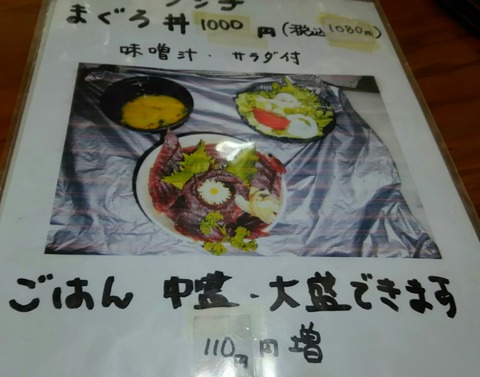 ランチ
まぐろ丼 1000円 (税込1080円)
味噌汁・サラダ付
ごはん 中盛・大盛できます
110円 円増